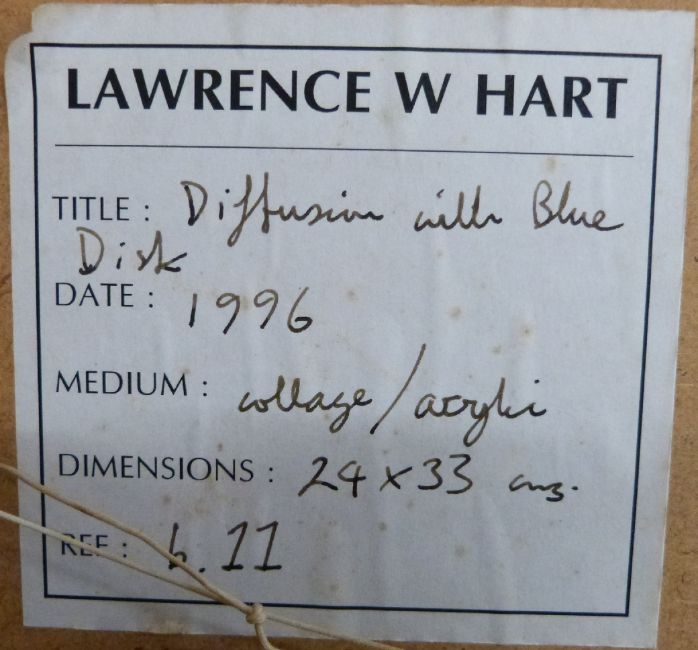 LAWRENCE W HART
TITLE : Diffusion with Blue
Disk
DATE : 1996
MEDIUM : collage/acrylic
DIMENSIONS : 24x33 cms.
REF : 6.11